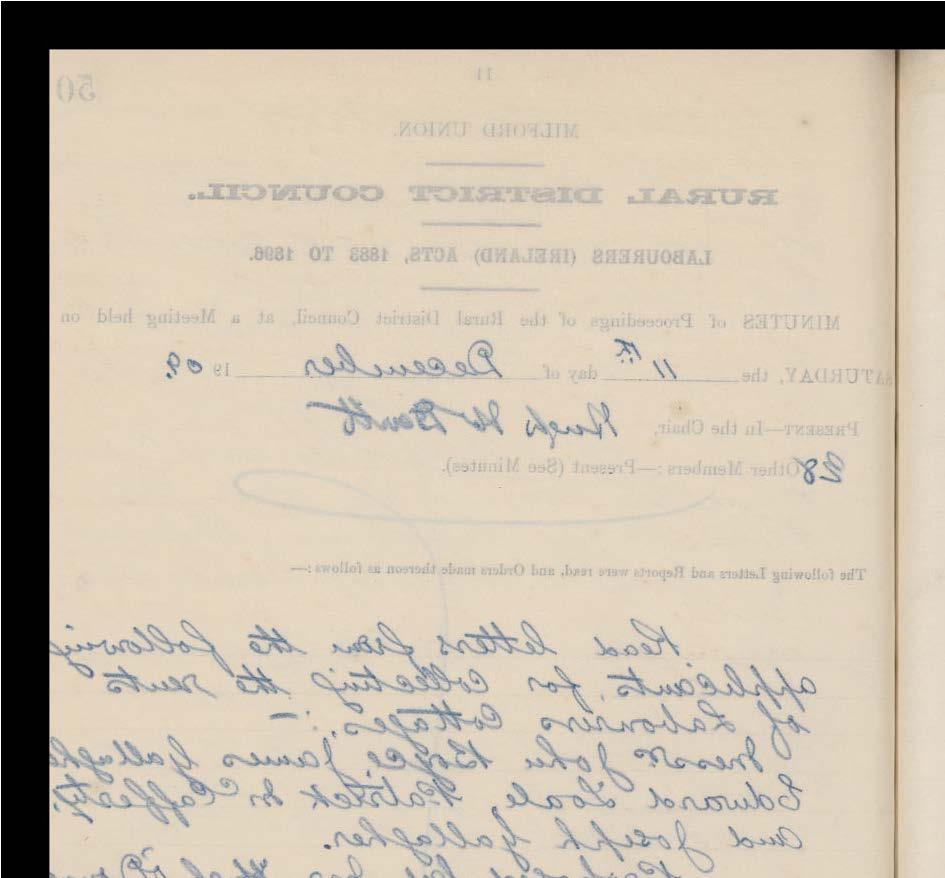 50
11
MILFORD UNION.
RURAL DISTRICT COUNCIL.
LABOURERS (IRELAND) ACTS, 1883 TO 1896.
MINUTES of Proceedings of the Rural District Council, at a Meeting held on
SATURDAY, the 11th day of December 1909.
PRESENT—In the Chair, Hugh
28 Other Members :—Present (See Minutes).
The following Letters and Reports were read, and Orders made thereon as follows :—
Read letters from the following
applicants for collecting the rents
of Labourers Cottages, :—
Messrs John Boyce, James Gallagher
Edward Toale, Patrick McCafferty,
and Joseph Gallagher.